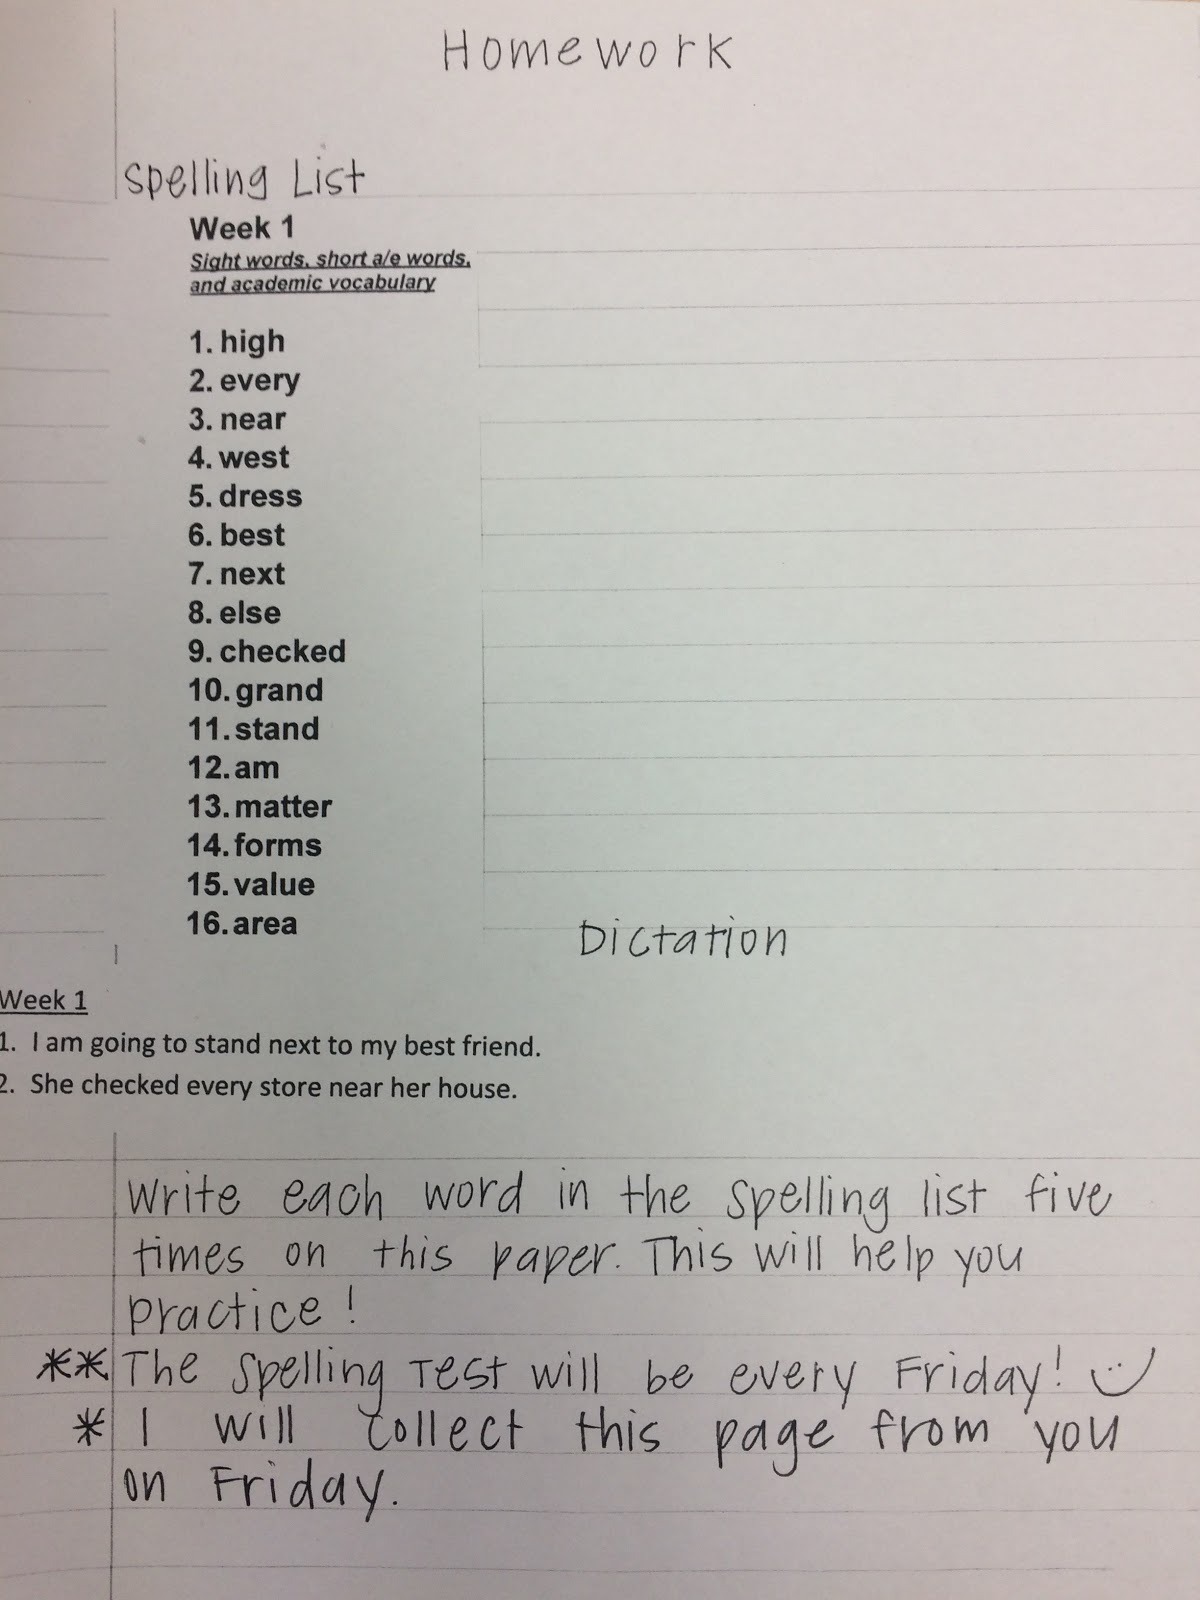 Homework
Spelling List
Week 1
Sight words, short a/e words,
and academic vocabulary
1. high
2. every
3. near
4. west
5. dress
6. best
7. next
8. else
9. checked
10. grand
11. stand
12. am
13. matter
14. forms
15. value
16. area
Dictation
Week 1
1. I am going to stand next to my best friend.
2. She checked every store near her house.
Write each word in the spelling list five
times on this paper. This will help you
practice!
** The Spelling Test will be every Friday!
* I will collect this page from you
on Friday.